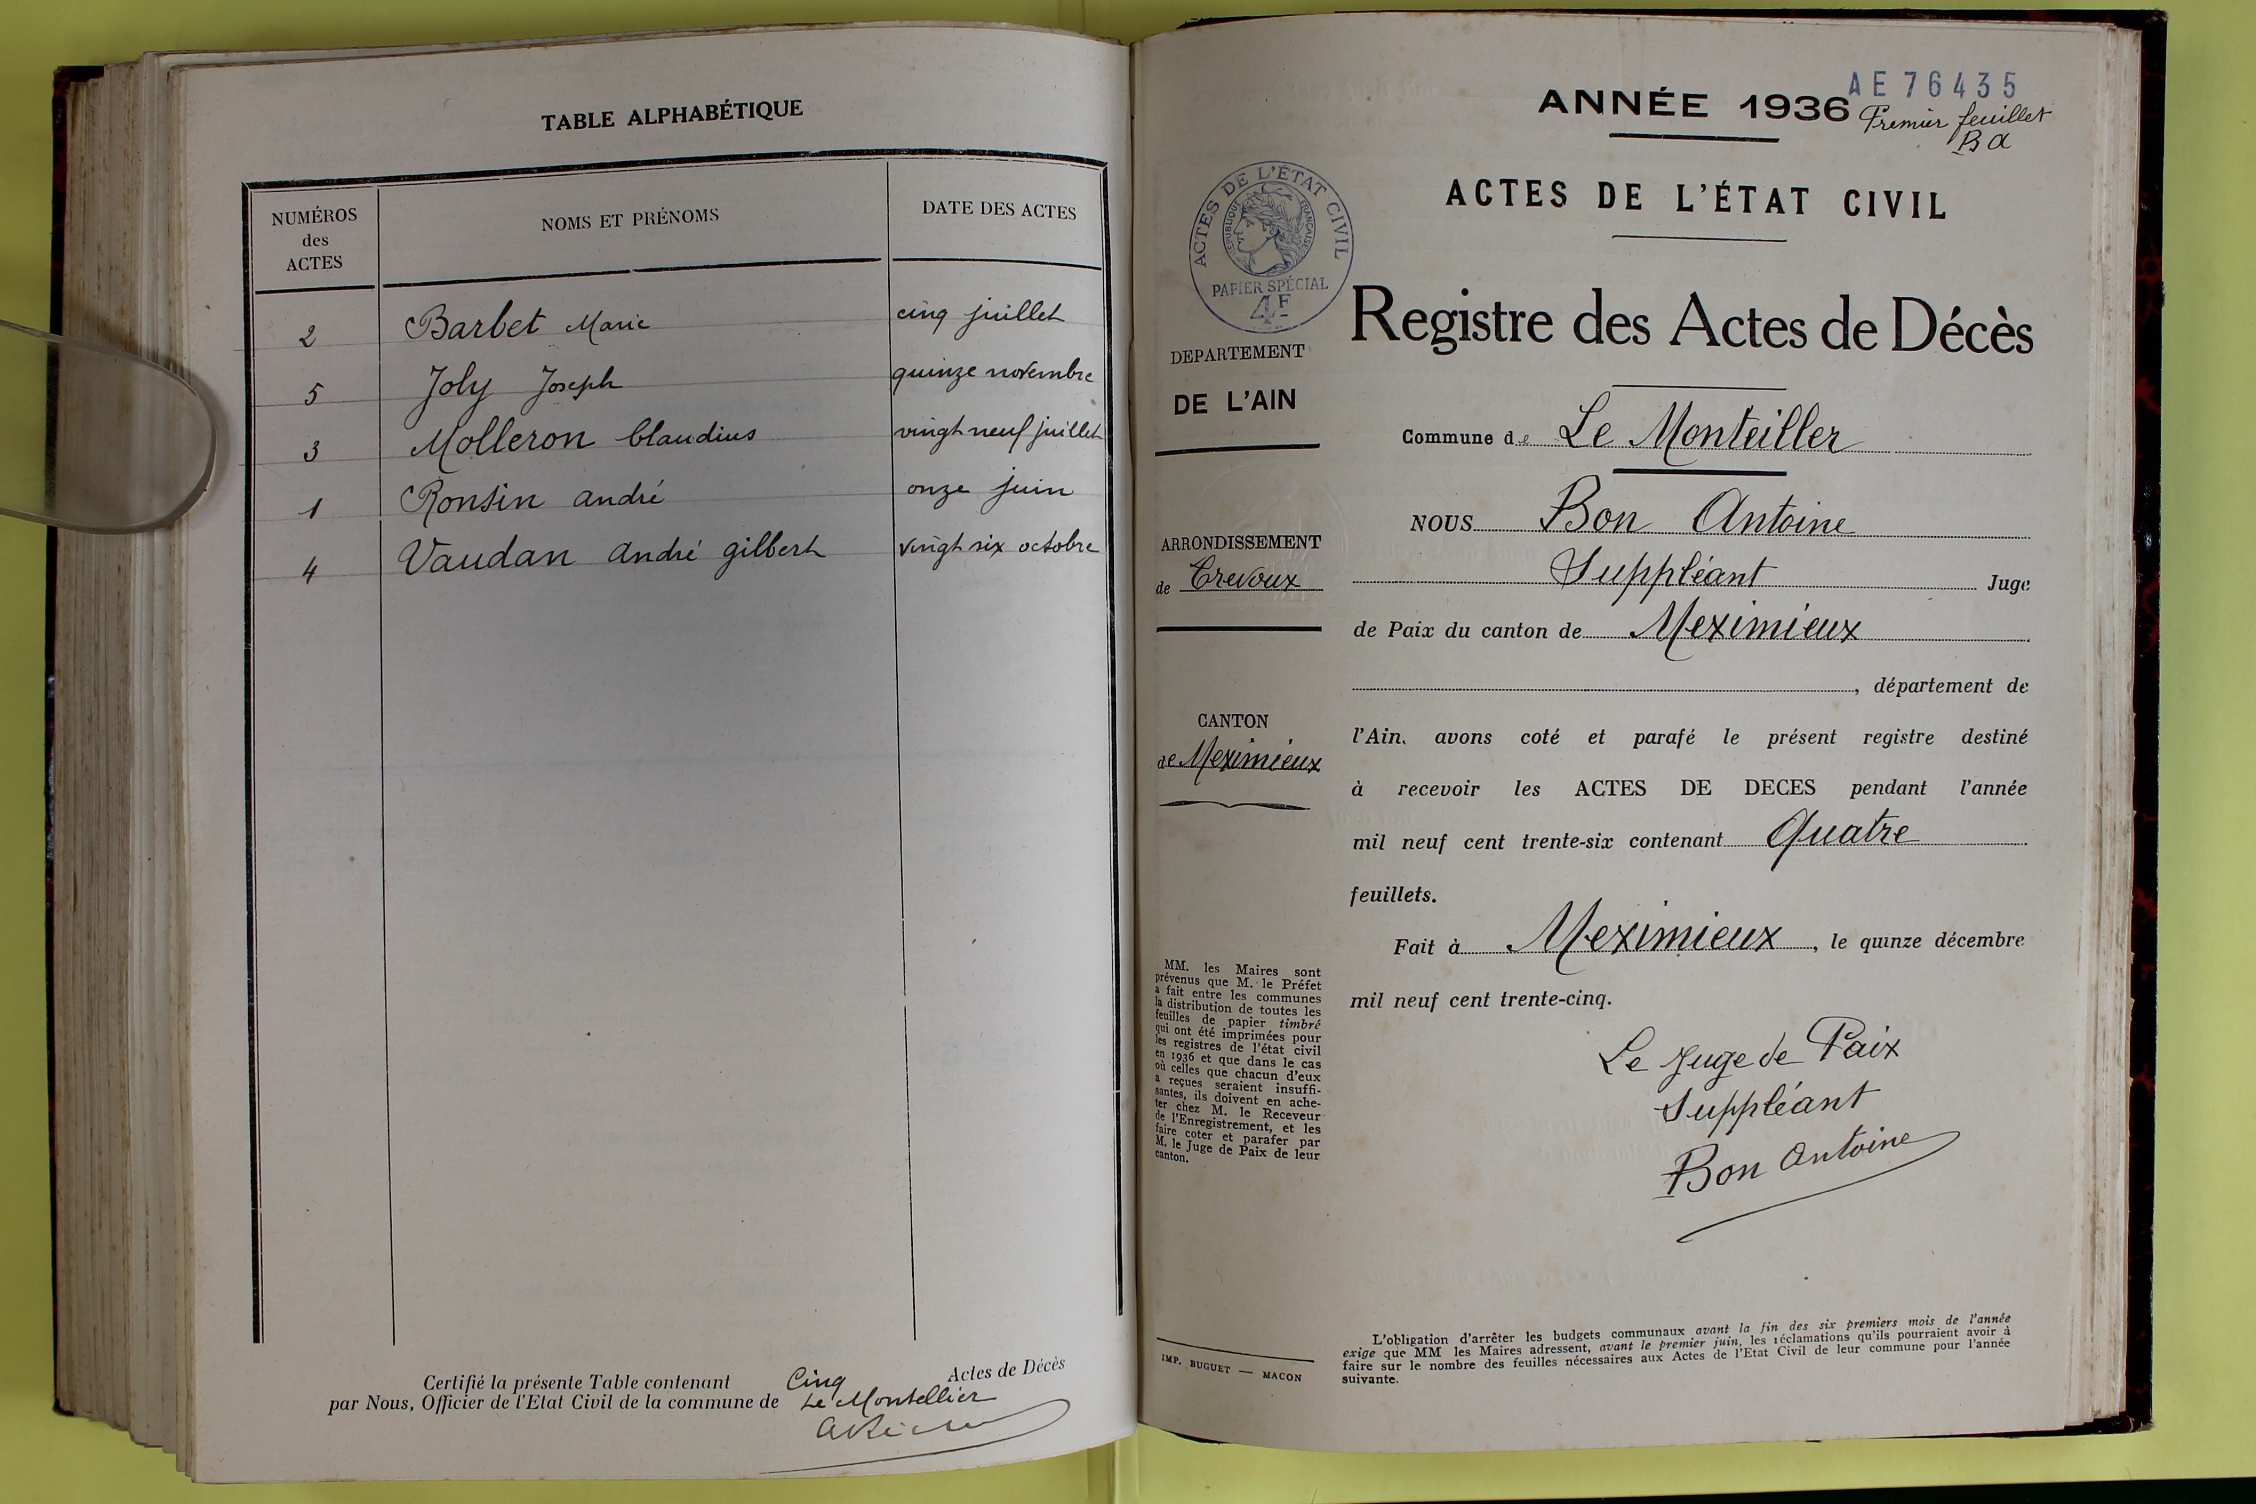 TABLE ALPHABÉTIQUE
NUMÉROS
des
ACTES
NOMS ET PRÉNOMS
DATE DES ACTES
2 Barbet Marie cinq juillet
5 Joly Joseph quinze novembre
3 Molleron Claudius vingt neuf juillet
1 Ronsin andré onze juin
4 Vaudan andré gilbert vingt six octobre
Certifié la présente Table contenant Cinq Actes de Décès
par Nous, Officier de l'Etat Civil de la commune de Le Montellier
AE 76435
ANNÉE 1936
Premier feuillet
B a
ACTES DE L'ÉTAT CIVIL
ACTES DE L'ÉTAT CIVIL
RÉPUBLIQUE FRANÇAISE
PAPIER SPÉCIAL
4F
Registre des Actes de Décès
DEPARTEMENT
DE L'AIN
Commune de Le Monteiller
NOUS Bon Antoine
ARRONDISSEMENT
de Trevoux
Suppléant Juge
de Paix du canton de Meximieux
, département de
CANTON
de Meximieux
l'Ain, avons coté et parafé le présent registre destiné
à recevoir les ACTES DE DECES pendant l'année
mil neuf cent trente-six contenant Quatre
feuillets.
Fait à Meximieux, le quinze décembre
mil neuf cent trente-cinq.
MM. les Maires sont
prévenus que M. le Préfet
a fait entre les communes
la distribution de toutes les
feuilles de papier timbré
qui ont été imprimées pour
les registres de l'état civil
en 1936 et que dans le cas
où celles que chacun d'eux
a reçues seraient insuffi-
santes, ils doivent en ache-
ter chez M. le Receveur
de l'Enregistrement, et les
faire coter et parafer par
M. le Juge de Paix de leur
canton.
Le Juge de Paix
Suppléant
Bon Antoine
IMP. BUGUET — MACON
L'obligation d'arrêter les budgets communaux avant la fin des six premiers mois de l'année
exige que MM les Maires adressent, avant le premier juin, les réclamations qu'ils pourraient avoir à
faire sur le nombre des feuilles nécessaires aux Actes de l'Etat Civil de leur commune pour l'année
suivante.